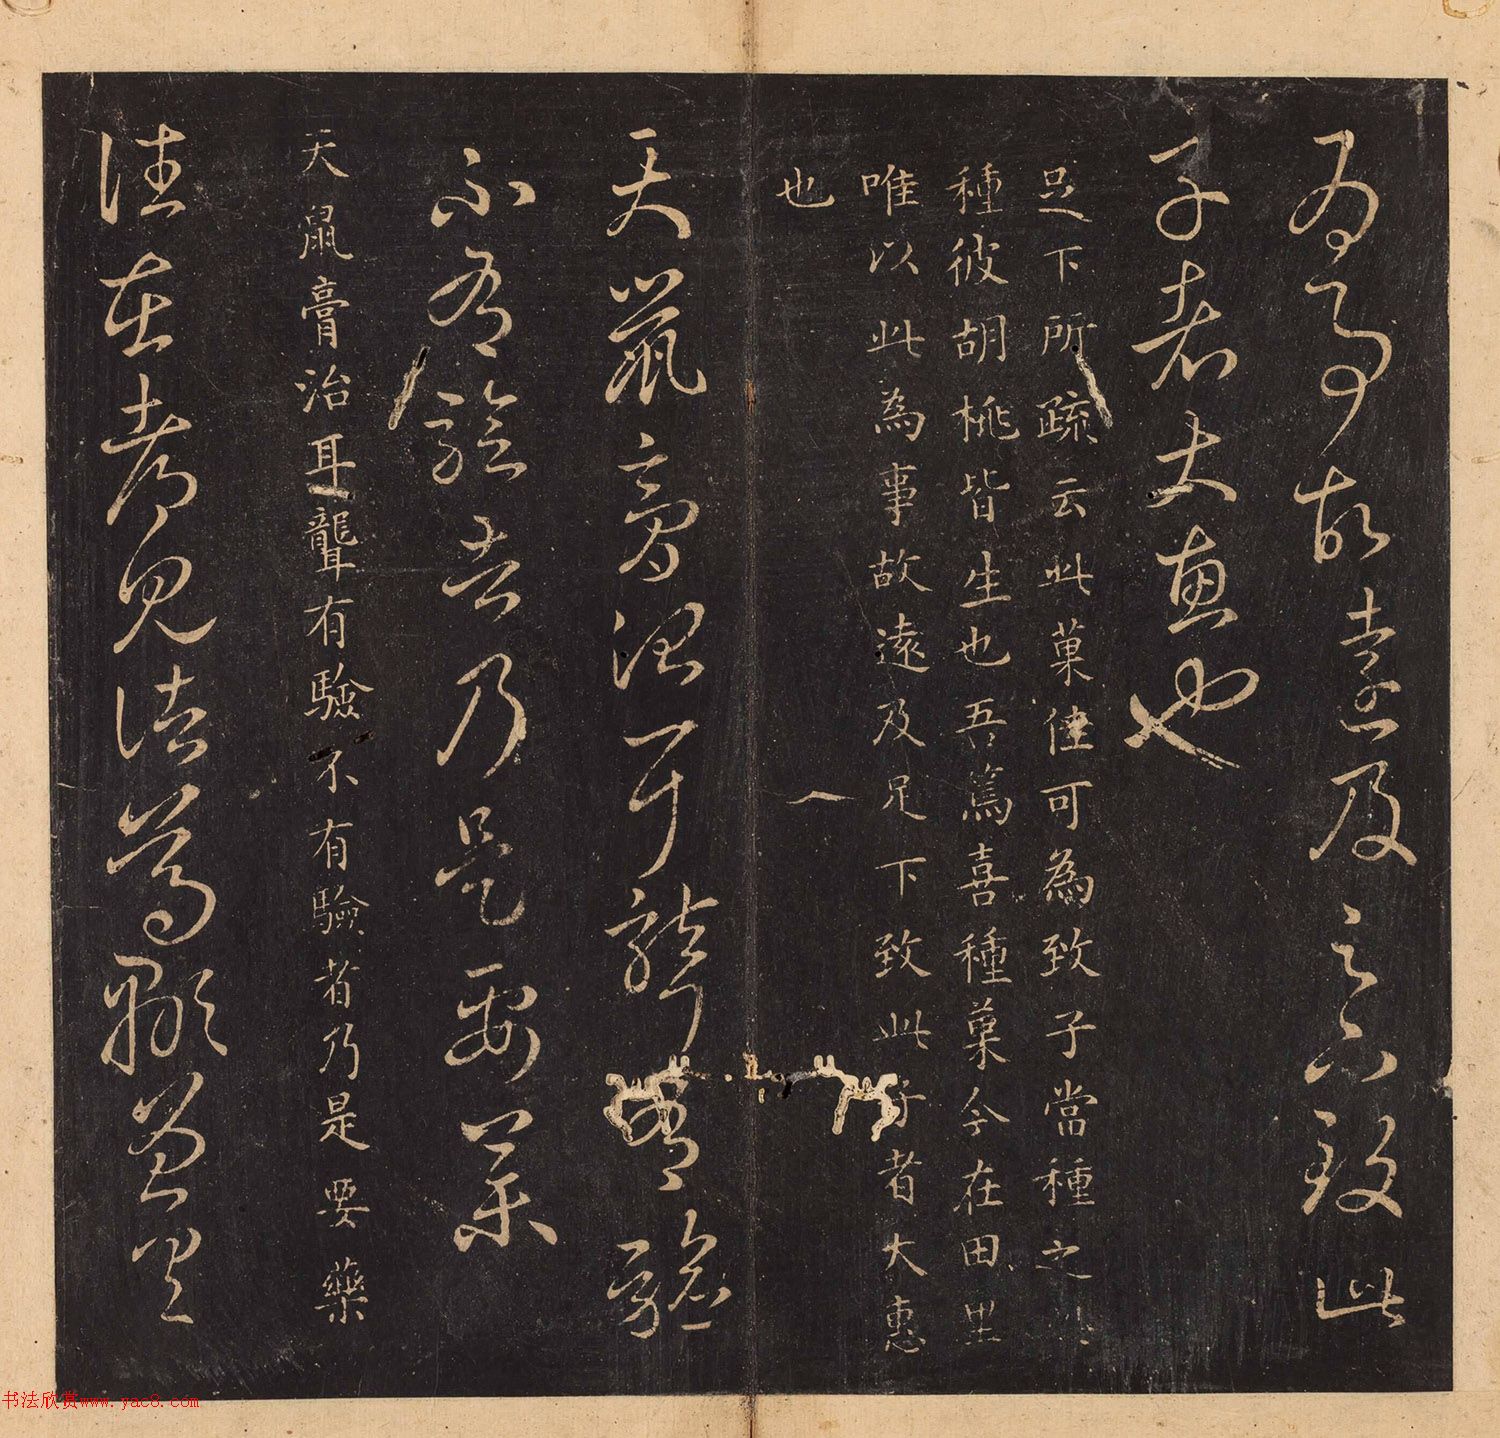 為事故遠及足下致此
子者大惠也
足下所疏云此菓佳可為致子當種之此
種彼胡桃皆生也吾篤喜種菓今在田里
唯以此為事故遠及足下致此子者大惠
也
天鼠膏治耳聾有驗
不有驗者乃是要藥
天鼠膏治耳聾有驗不有驗者乃是要藥
往在都見諸葛顒曾具
书法欣赏www.yac8.com